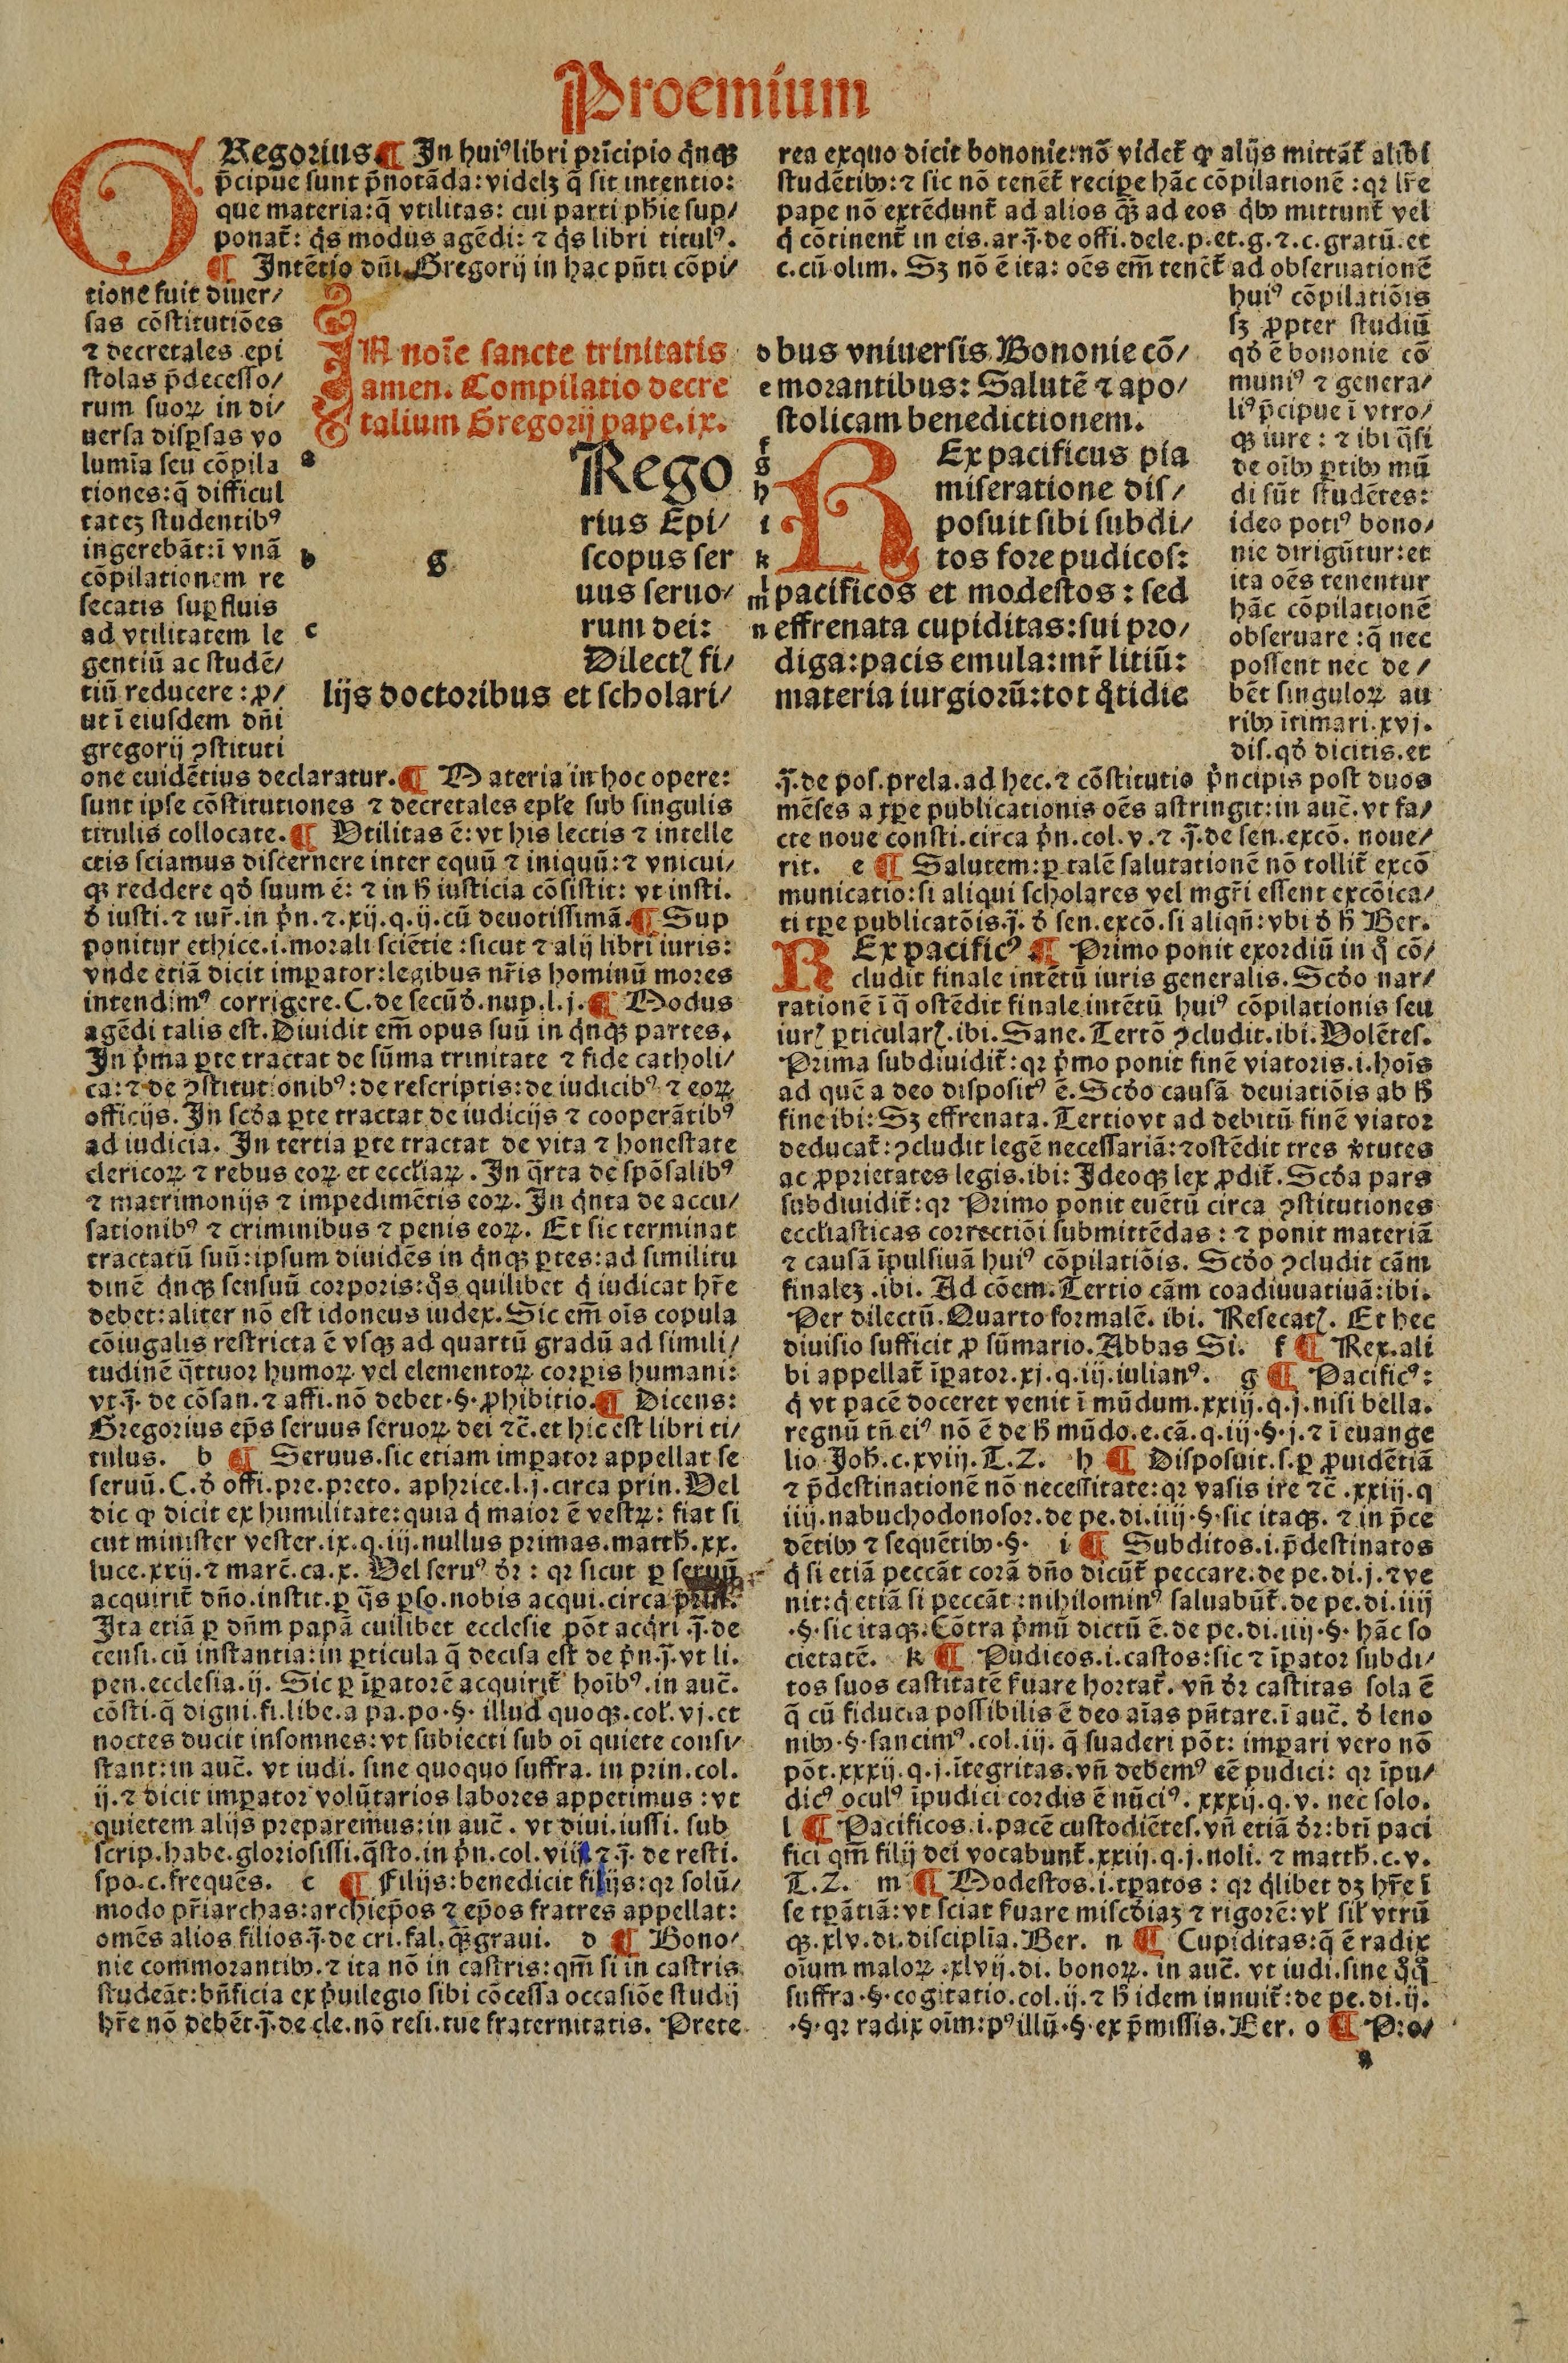 Proemium
GRegorius¶ In huiꝰ libri pri̅cipio qͥnqꝫ
p̅cipue sunt p̅notāda: videlꝫ q̅ sit intentio:
que materia: q̅ vtilitas: cui parti ph̅ie sup/
ponat᷑: qͥs modus agēdi: ⁊ qͥs libri titulꝰ.
¶ Intētio dn̄i Gregorij in hac pn̄ti cōpi/
tione fuit diuer/
sas cōstitutiōes
⁊ decretales epi
stolas p̅decesso/
rum suoꝝ in di/
uersa disꝑsas vo
lumīa seu cōpila
tiones: q̅ difficul
tateꝫ studentibꝰ
ingerebāt: ī vnā
cōpilationem re
secatis suꝑfluis
ad vtilitatem le
gentiū ac studē/
tiū reducere: ꝓ/
ut ī eiusdem dn̄i
gregorij ꝯstituti
one euidētius declaratur.¶ Materia in hoc opere:
sunt ipse cōstitutiones ⁊ decretales epl̄e sub singulis
titulis collocate.¶ Vtilitas ē: vt his lectis ⁊ intelle
ctis sciamus discernere inter equū ⁊ iniquū: ⁊ vnicui/
qꝫ reddere qd̓ suum ē: ⁊ in h̅ iusticia cōsistit: vt insti.
d̓ iusti. ⁊ iur̄. in pͥn. ⁊. xij. q. ij. cū deuotissimā.¶ Sup
ponitur ethice. i. morali sciētie: sicut ⁊ alij libri iuris:
vnde etiā dicit imꝑator: legibus nr̄is hominū mores
intendimꝰ corrigere. C. de secūd̓. nup. l. j.¶ Modus
agēdi talis est. Diuidit em̄ opus suū in qͥnqꝫ partes.
In pͥma ꝑte tractat de sūma trinitate ⁊ fide catholi/
ca: ⁊ de ꝯstitutionibꝰ: de rescriptis: de iudicibꝰ ⁊ eoꝝ
officijs. In scd̓a ꝑte tractat de iudicijs ⁊ cooperātibꝰ
ad iudicia. In tertia ꝑte tractat de vita ⁊ honestate
clericoꝝ ⁊ rebus eoꝝ et eccl̄iaꝝ. In q̅rta de spōsalibꝰ
⁊ matrimonijs ⁊ impedimētis eoꝝ. In qͥnta de accu/
sationibꝰ ⁊ criminibus ⁊ penis eoꝝ. Et sic terminat
tractatū suū: ipsum diuidēs in qͥnqꝫ ꝑtes: ad similitu
dinē qͥnqꝫ sensuū corporis: qͦs quilibet qͥ iudicat hr̄e
debet: aliter nō est idoneus iudex. Sic em̄ oīs copula
cōiugalis restricta ē vsqꝫ ad quartū gradū ad simili/
tudinē q̅ttuor humoꝝ vel elementoꝝ corꝑis humani:
vt. j̅. de cōsan. ⁊ affi. nō debet. §. ꝓhibitio.¶ Dicens:
Gregorius ep̄s seruus seruoꝝ dei ⁊c̄. et hic est libri ti/
tulus. b ¶ Seruus. sic etiam imꝑator appellat se
seruū. C. d̓ offi. pre. preto. aphrice. l. j. circa prin. Vel
dic ꝙ dicit ex humilitate: quia qͥ maior ē vestꝝ: fiat si
cut minister vester. ix. q. iij. nullus primas. matth̅. xx.
luce. xxij. ⁊ marc̄. ca. x. Vel seruꝰ dr̓: qꝛ sicut ꝑ seruū
acquirit᷑ dn̄o. instit. ꝑ q̅s ꝑso. nobis acqui. circa prin.
Ita etiā ꝑ dn̄m papā cuilibet ecclesie pōt acqͥri. j̅. de
censi. cū instantia: in ꝑticula q̅ decisa est de pͥn. j̅. vt li.
pen. ecclesia. ij. Sic ꝑ īꝑatorē acquirit᷑ hoībꝰ. in auc̄.
cōsti. q̅ digni. fi. libe. a pa. po. §. illud quoqꝫ. col̄. vj. et
noctes ducit insomnes: vt subiecti sub oī quiete consi/
stant: in auc̄. vt iudi. sine quoquo suffra. in prin. col.
ij. ⁊ dicit imꝑator volūtarios labores appetimus: vt
quietem alijs preparemus: in auc̄. vt diui. iussi. sub
scrip. habe. gloriosissi. q̅sto. in pͥn. col. viij. ⁊. j̅. de resti.
spo. c. frequēs. c ¶ Filijs: benedicit filijs: qꝛ solū/
modo pr̄iarchas: archiep̄os ⁊ ep̄os fratres appellat:
omēs alios filios. j̅. de cri. fal. q̅ꝫ graui. d ¶ Bono/
nie commorantibꝰ. ⁊ ita nō in castris: qm̄ si in castris
studeāt: bn̄ficia ex pͥuilegio sibi cōcessa occasiōe studij
hr̄e nō debēt. j̅. de cle. nō resi. tue fraternitatis. Prete
IN noīe sancte trinitatis
amen. Compilatio decre
talium Gregorij pape. ix.
a
Rego
rius Epi/
b
g
scopus ser
uus seruo/
c
rum dei:
Dilectꝭ fi/
lijs doctoribus et scholari/
d bus vniuersis Bononie cō/
e morantibus: Salutē ⁊ apo/
stolicam benedictionem.
f
g
REx pacificus pia
h miseratione dis/
i posuit sibi subdi/
k tos fore pudicos:
l
m pacificos et modestos: sed
n effrenata cupiditas: sui pro/
diga: pacis emula: mr̄ litiū:
materia iurgiorū: tot qͦtidie
rea exquo dicit bononie: nō videt᷑ ꝙ alijs mittāt᷑ alibi
studētibꝰ: ⁊ sic nō tenēt᷑ reciꝑe hāc cōpilationē: qꝛ lr̄e
pape nō extēdunt᷑ ad alios q̅ꝫ ad eos qͥbꝰ mittunt᷑ vel
qͥ cōtinent᷑ in eis. ar. j̅. de offi. dele. p. et. g. ⁊. c. gratū. et
c. cū olim. Sꝫ nō ē ita: oēs em̄ tenēt᷑ ad obseruationē
huiꝰ cōpilatiōis
sꝫ ꝓpter studiū
qd̓ ē bononie cō
muniꝰ ⁊ genera/
liꝰ p̅cipue ī vtro/
qꝫ iure: ⁊ ibi q̅si
de oībꝰ ꝑtibꝰ mū
di sūt studētes:
ideo potiꝰ bono/
nie dirigūtur: et
ita oēs tenentur
hāc cōpilationē
obseruare: q̅ nec
possent nec de/
bēt singuloꝝ au
ribꝰ ītimari. xvj.
dis. qd̓ dicitis. et
.j̅. de pos. prela. ad hec. ⁊ cōstitutio pͥncipis post duos
mēses a tꝑe publicationis oēs astringit: in auc̄. vt fa/
cte noue consti. circa pͥn. col. v. ⁊. j̅. de sen. excō. noue/
rit. e ¶ Salutem: ꝑ talē salutationē nō tollit᷑ excō
municatio: si aliqui scholares vel mgr̄i essent excōica/
ti tꝑe publicatōis. j̅. d̓ sen. excō. si aliqn̄: vbi d̓ h̅ Ber.
REx pacificꝰ ¶ Primo ponit exordiū in qͦ cō/
cludit finale intētū iuris generalis. Scd̓o nar/
rationē ī q̅ ostēdit finale intētū huiꝰ cōpilationis seu
iurꝭ ꝑticularꝭ. ibi. Sane. Tertō ꝯcludit. ibi. Volētes.
Prima subdiuidit᷑: qꝛ pͥmo ponit finē viatoris. i. hoīs
ad quē a deo dispositꝰ ē. Scd̓o causā deuiatiōis ab h̅
fine ibi: Sꝫ effrenata. Tertio vt ad debitū finē viator
deducat᷑: ꝯcludit legē necessariā: ⁊ ostēdit tres vͥtutes
ac ꝓprietates legis. ibi: Ideoqꝫ lex ꝓdit᷑. Scd̓a pars
subdiuidit᷑: qꝛ Primo ponit euētū circa ꝯstitutiones
eccl̄iasticas correctiōi submittēdas: ⁊ ponit materiā
⁊ causā īpulsiuā huiꝰ cōpilatiōis. Scd̓o ꝯcludit cām
finaleꝫ. ibi. Ad cōem. Tertio cām coadiuuatiuā: ibi.
Per dilectū. Quarto formalē. ibi. Resecatꝭ. Et hec
diuisio sufficit ꝓ sūmario. Abbas Si. f ¶ Rex. ali
bi appellat᷑ īꝑator. xj. q. iij. iulianꝰ. g ¶ Pacificꝰ:
qͥ vt pacē doceret venit ī mūdum. xxiij. q. j. nisi bella.
regnū tn̄ eiꝰ nō ē de h̅ mūdo. e. cā. q. iij. §. j. ⁊ ī euange
lio Joh̅. c. xviij. T. 2. h ¶ Disposuit. s. ꝑ ꝓuidētiā
⁊ p̅destinationē nō necessitate: qꝛ vasis ire ⁊c̄. xxiij. q
iiij. nabuchodonosor. de pe. di. iiij. §. sic itaqꝫ. ⁊ in p̅ce
dētibꝰ ⁊ sequētibꝰ. §. i ¶ Subditos. i. p̅destinatos
qͥ si etiā peccāt corā dn̄o dicūt᷑ peccare. de pe. di. j. ⁊ ve
nit: qͥ etiā si peccāt: nihilominꝰ saluabūt᷑. de pe. di. iiij
.§. sic itaqꝫ. Cōtra pͥmū dictū ē. de pe. di. iiij. §. hāc so
cietatē. k ¶ Pudicos. i. castos: sic ⁊ īꝑator subdi/
tos suos castitatē ẜuare hortat᷑. vn̄ dr̓ castitas sola ē
q̅ cū fiducia possibilis ē deo aīas pn̄tare. ī auc̄. d̓ leno
nibꝰ. §. sancimꝰ. col. iij. q̅ suaderi pōt: imꝑari vero nō
pōt. xxxij. q. j. ītegritas. vn̄ debemꝰ eē pudici: qꝛ īpu/
dicꝰ oculꝰ īpudici cordis ē nūciꝰ. xxxij. q. v. nec solo.
l ¶ Pacificos. i. pacē custodiētes. vn̄ etiā dr̓: btī paci
fici qm̄ filij dei vocabunt᷑. xxiij. q. j. noli. ⁊ matth̅. c. v.
T. 2. m ¶ Modestos. i. tꝑatos: qꝛ qͥlibet dꝫ hr̄e ī
se tꝑātiā: vt sciat ẜuare miscd̓iaꝫ ⁊ rigorē: vl̄ sil̄ vtrū
qꝫ. xlv. di. disciplīa. Ber. n ¶ Cupiditas: q̅ ē radix
oīum maloꝝ. xlvij. di. bonoꝝ. in auc̄. vt iudi. sine qͦqͦ
suffra. §. cogitatio. col. ij. ⁊ h̅ idem innuit᷑: de pe. di. ij.
.§. qꝛ radix oīm: pꝰ illū. §. ex p̅missis. Ber. o ¶ Pro/
a
7